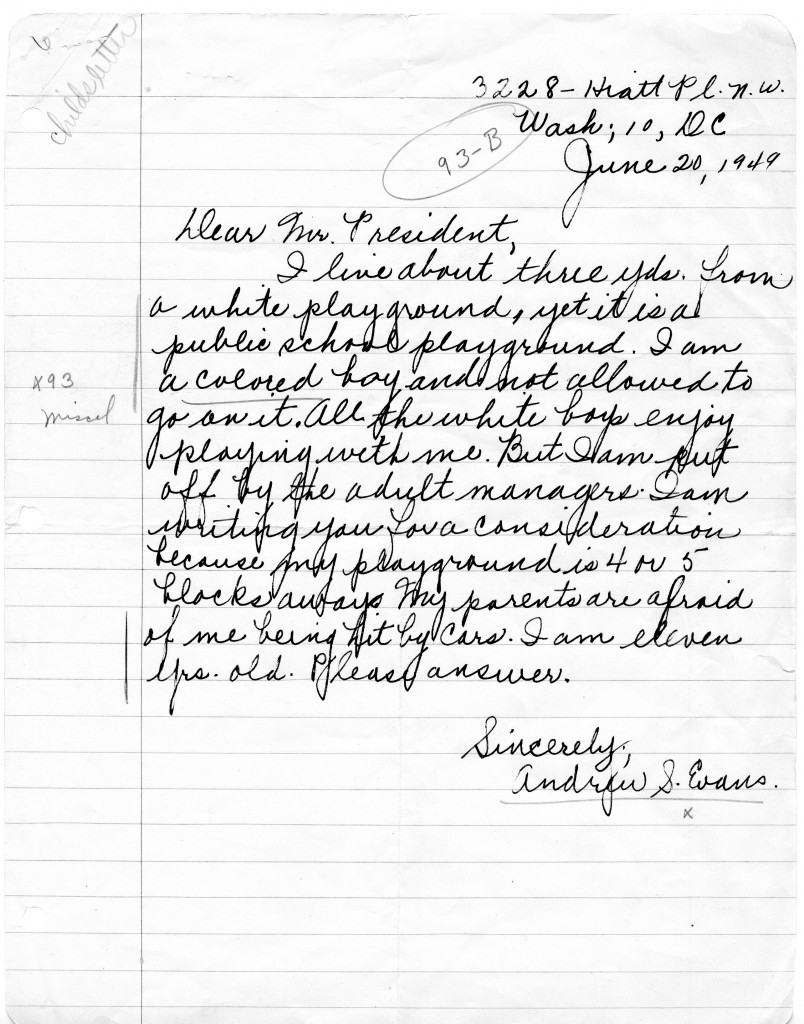 childs letter
3228-Hiatt Pl. n.w.
Wash; 10, DC
93-B
June 20, 1949
Dear Mr. President,
I live about three yds. from
a white playground, yet it is a
public school playground. I am
a colored boy and not allowed to
x93
miscel
go on it. All the white boys enjoy
playing with me. But I am put
off by the adult managers. I am
writing you for a consideration
because my playground is 4 or 5
blocks away. My parents are afraid
of me being hit by cars. I am eleven
yrs. old. Please answer.
Sincerely,
Andrew S. Evans.
x